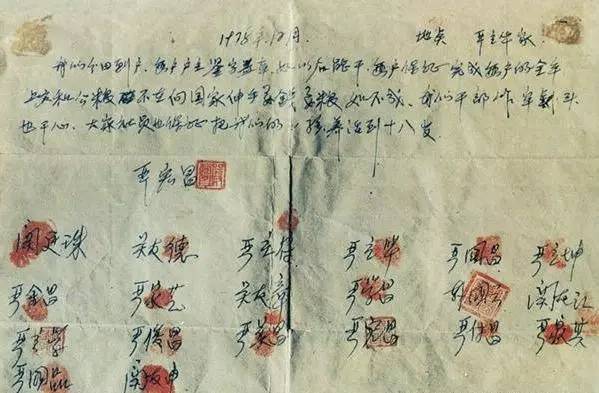 1978年12月. 地点 严立华家.
我们分田到户,每户户主签字盖章,如以后能干,每户保证完成每户的全年
上交和公粮 不在向国家伸手要钱要粮,如不成,我们干部作牢刹头
也干心,大家社员也保证把我们的小孩养活到十八岁。
严宏昌
关廷珠 关友德 严立符 严立华 严国昌 严立坤
严金昌 严家芝 关友章 严学昌 韩国云 关友江
严立学 严俊昌 严美昌 严宏昌 严付昌 严家其
严国品 关友申